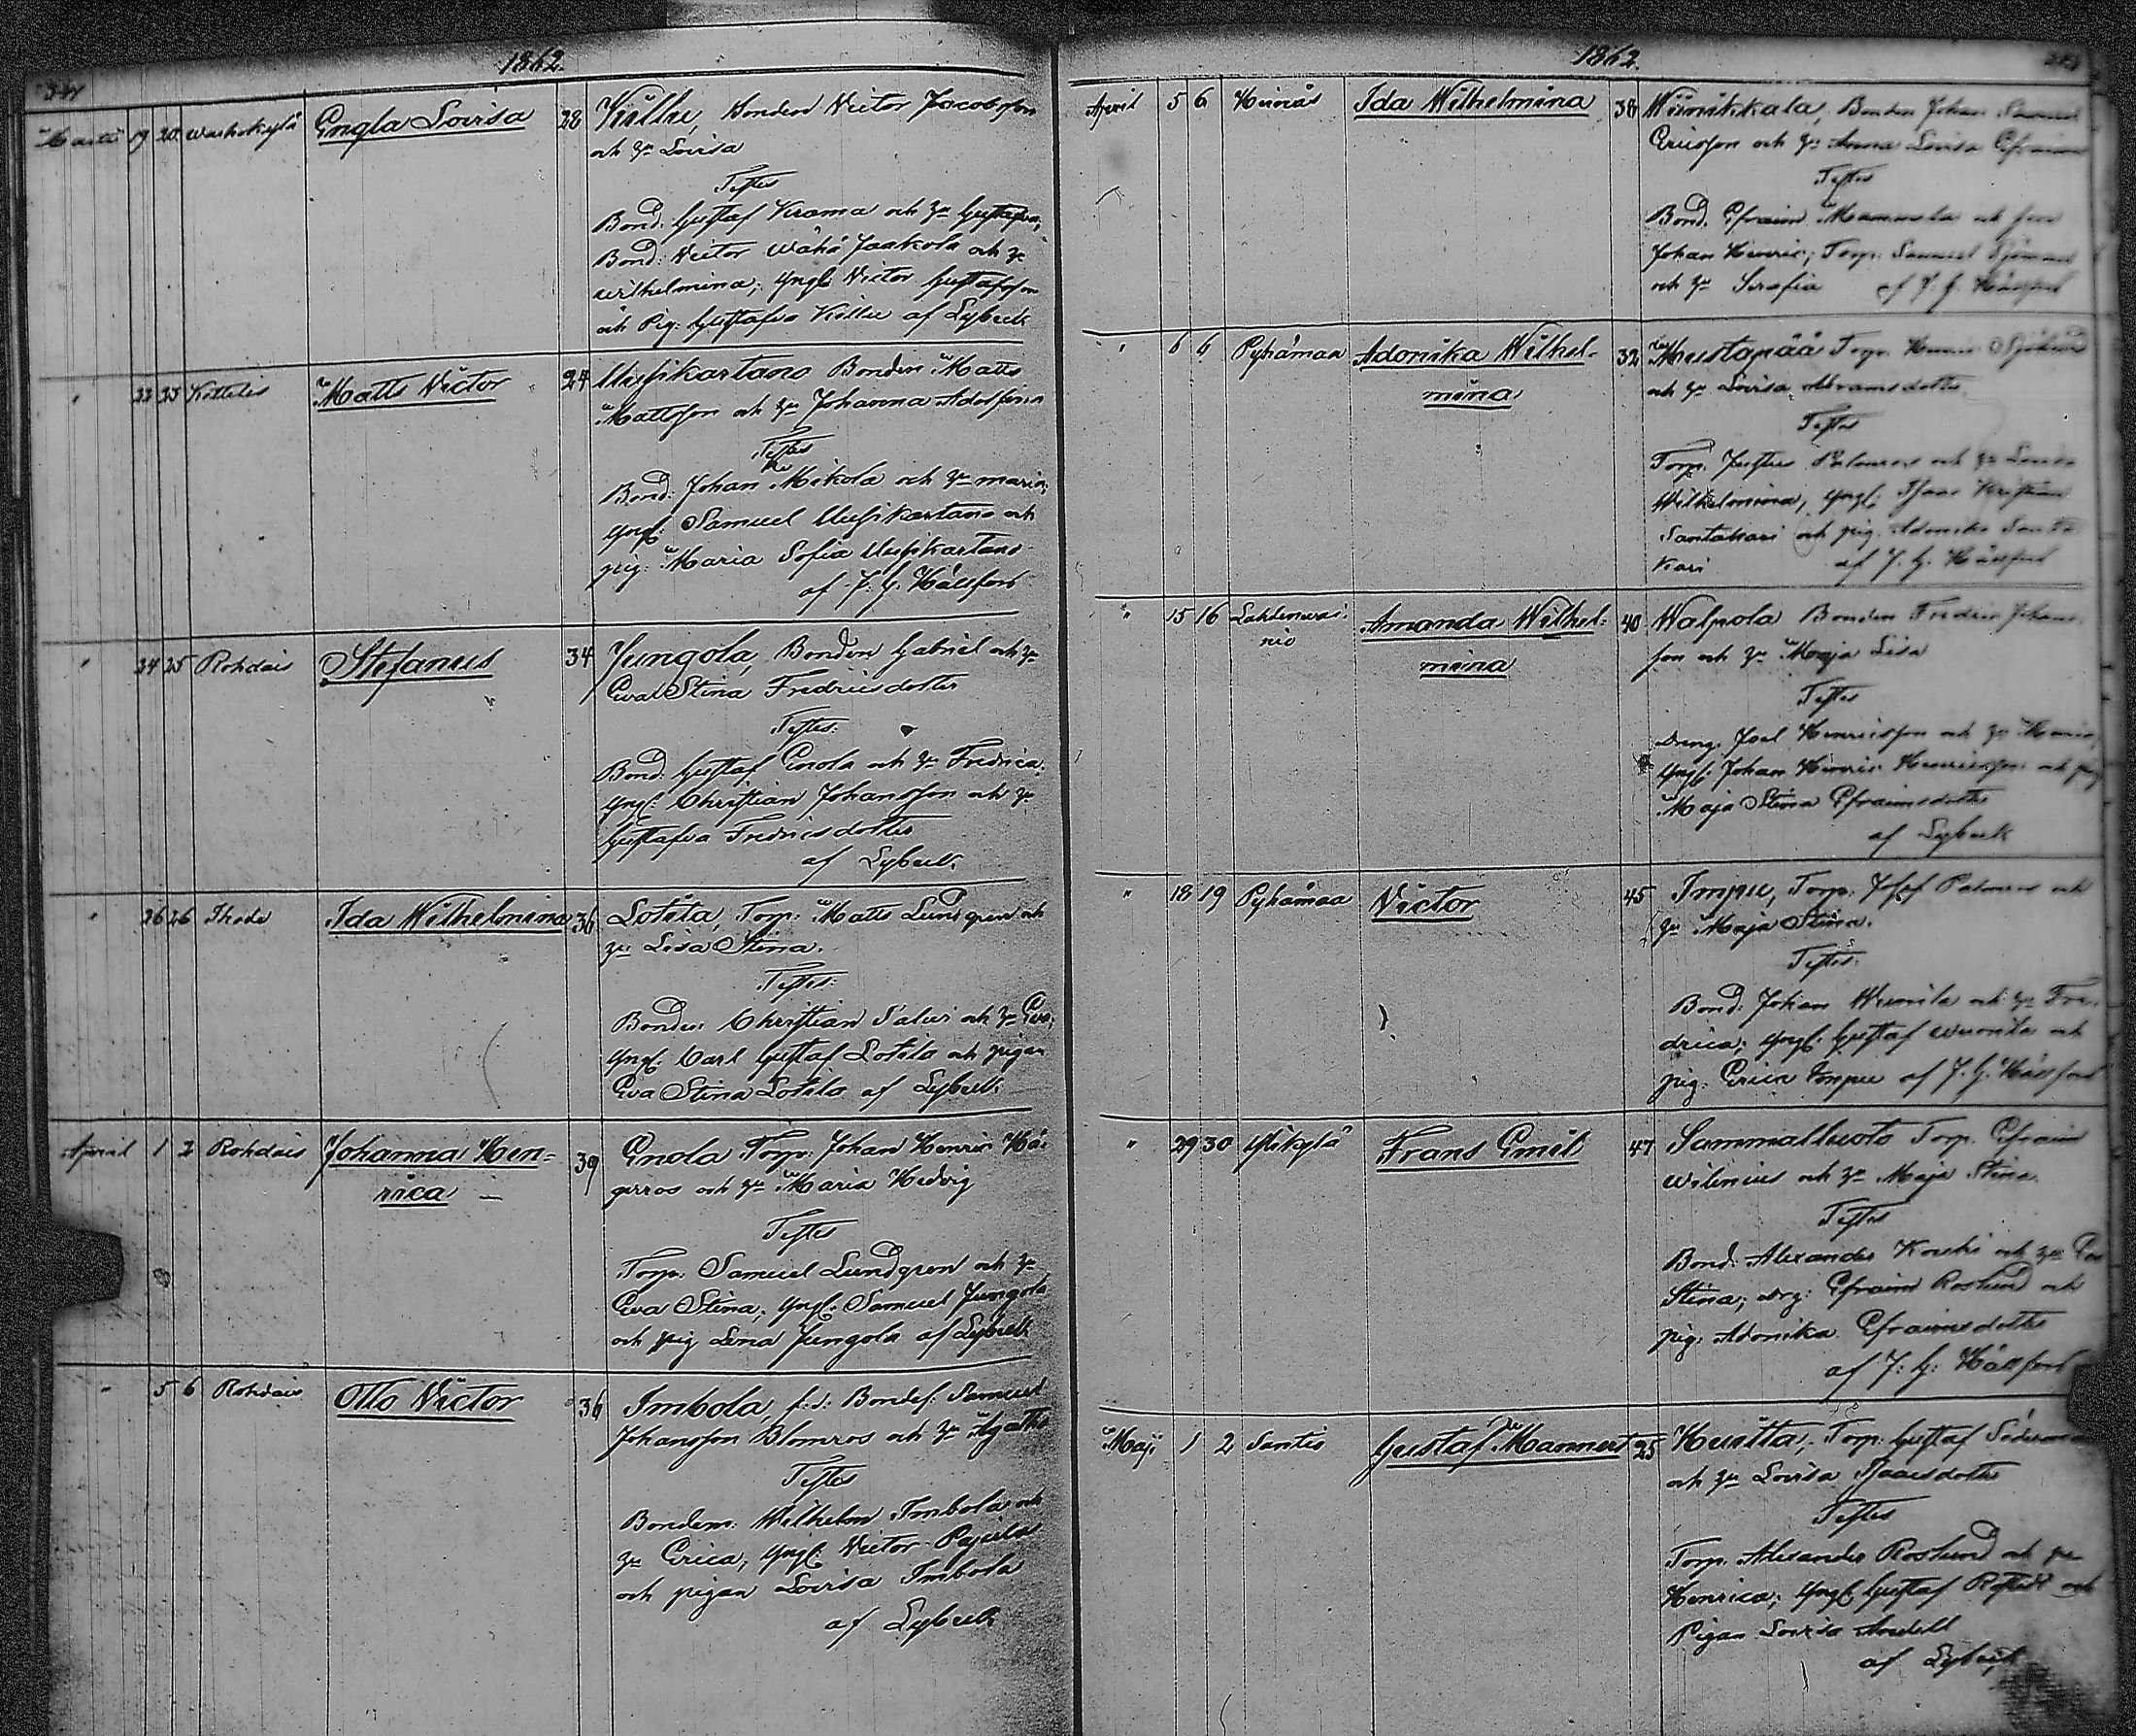 1862.
Martii 19 20 Engla Lovisa 28 Killu, Bonden Victor Jacobsson
och hu Lovisa
Testes
Bond: Gustaf Krama och hu Gustafva;
Bond: Victor Wähä Jaakola och hu
Wilhelmina; Yngl: Victor Gustafsson
och Pig: Gustafva Killu af Lybeck
" 22 23 Kettelis Matts Victor 24 Uusikartano Bonden Matts
Mattsson och hu Johanna Adolfina
Testes
Bond: Johan Mikola och hu Maria;
Yngl: Samuel Uusikartano och
pig: Maria Sofia Uusikartano
af J. G. Hällfors
" 24 25 Rohdais Stefanus 34 Jungola, Bonden Gabriel och hu
Eva Stina Fredricsdotter
Testes:
Bond: Gustaf Enola och hu Fredrica;
Yngl: Christian Johansson och hu
Gustafva Fredricsdotter
af Lybeck.
" 26 26 Ihode Ida Wilhelmina 36 Lotila, Torp: Matts Lundgren och
hu Lisa Stina.
Testes:
Bonden Christian Salvi och hu Eva;
Yngl: Carl Gustaf Lotila och pigan
Eva Stina Lotila af Lybeck
April 1 2 Rohdais Johanna Hen=
rica 39 Enola Torp: Johan Henric Hä-
gerros och hu Maria Hedvig
Testes
Torp: Samuel Lundgren och hu
Eva Stina; Yngl: Samuel Jungola
och pig Lena Jungola af Lybeck
" 5 6 Rohdais Otto Victor 36 Imbola, f.d. Bondes: Samuel
Johansson Blomros och hu Agatha
Testes
Bonden: Wilhelm Imbola och
hu Erica; Yngl: Victor Pajula
och pigan Lovisa Imbola
af Lybeck
1862.
April 5 6 Heinäs Ida Wilhelmina 38 Wiinikkala, Bonden Johan Samuel
Ericsson och hu Anna Lovisa Efraims
Testes
Bond. Efraim och son
Johan Henric; Torp: Samuel Sjöman
och hu Serafia af J. G. Hällfors
" 6 6 Pyhämaa Adonika Wilhel-
mina 32 Mustapää Torp. Henric Sjölund
och hu Lovisa Abramsdotter
Testes
Torp. Justus Palmros och hu Lovisa
Wilhelmina; Yngl: Isaac Kristian
Santakari och pig. Adonika Santa
kari af J. G. Hällfors
" 15 16 Amanda Wilhel-
mina 40 Walpola Bonden Fredric Johans-
son och hu Maja Lisa
Testes
Dreng. Joel Henricsson och hu Maria;
Yngl: Johan Henric Henricsson och pig
Maja Stina Efraimsdotter
af Lybeck
" 18 19 Pyhämaa Victor 45 Impu, Torp: Josef Palmros och
hu Maja Stina.
Testes:
Bond: Johan Wuorila och hu Fre-
drica; Yngl: Gustaf Wuorila och
pig: Erica Impu af J. G. Hällfors
" 29 30 Ylikylä Frans Emil 47 Sammalluoto Torp. Efraim
Wilenius och hu Maja Stina.
Testes
Bond: Alexander Koski och hu Eva
Stina; Drg: Efraim Roslund och
pig: Adonika Efraimsdotter
af J. G. Hällfors
Maji 1 2 Santio Gustaf Mannert 25 Huitta, Torp: Gustaf Söderman
och hu Lovisa Isaacsdotter
Testes
Torp. Alexander Roslund och hu
Henrica; Yngl: Gustaf och
Pigan Lovisa
af Lybeck